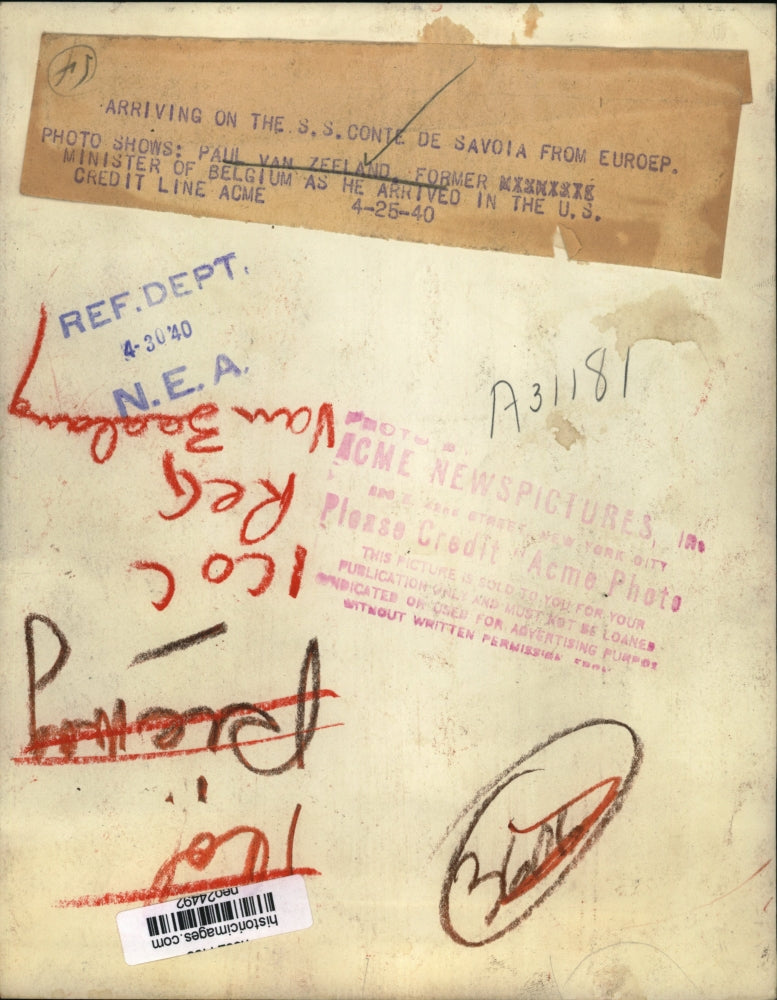 ARRIVING ON THE S.S. CONTE DE SAVOIA FROM EUROEP.
PHOTO SHOWS: PAUL VAN ZEELAND, FORMER
MINISTER OF BELGIUM AS HE ARRIVED IN THE U.S.
CREDIT LINE ACME 4-25-40
REF. DEPT.
4-30'40
N.E.A.
A31181
Van Zeeland
Reg
1 Col
ACME NEWSPICTURES, Inc
STREET, NEW YORK CITY
Please Credit "Acme Photo
THIS PICTURE IS SOLD TO YOU FOR YOUR
PUBLICATION ONLY AND MUST NOT BE LOANED
SYNDICATED OR USED FOR ADVERTISING PURPOS
WITHOUT WRITTEN PERMISSION FROM
historicimages.com
neo24492